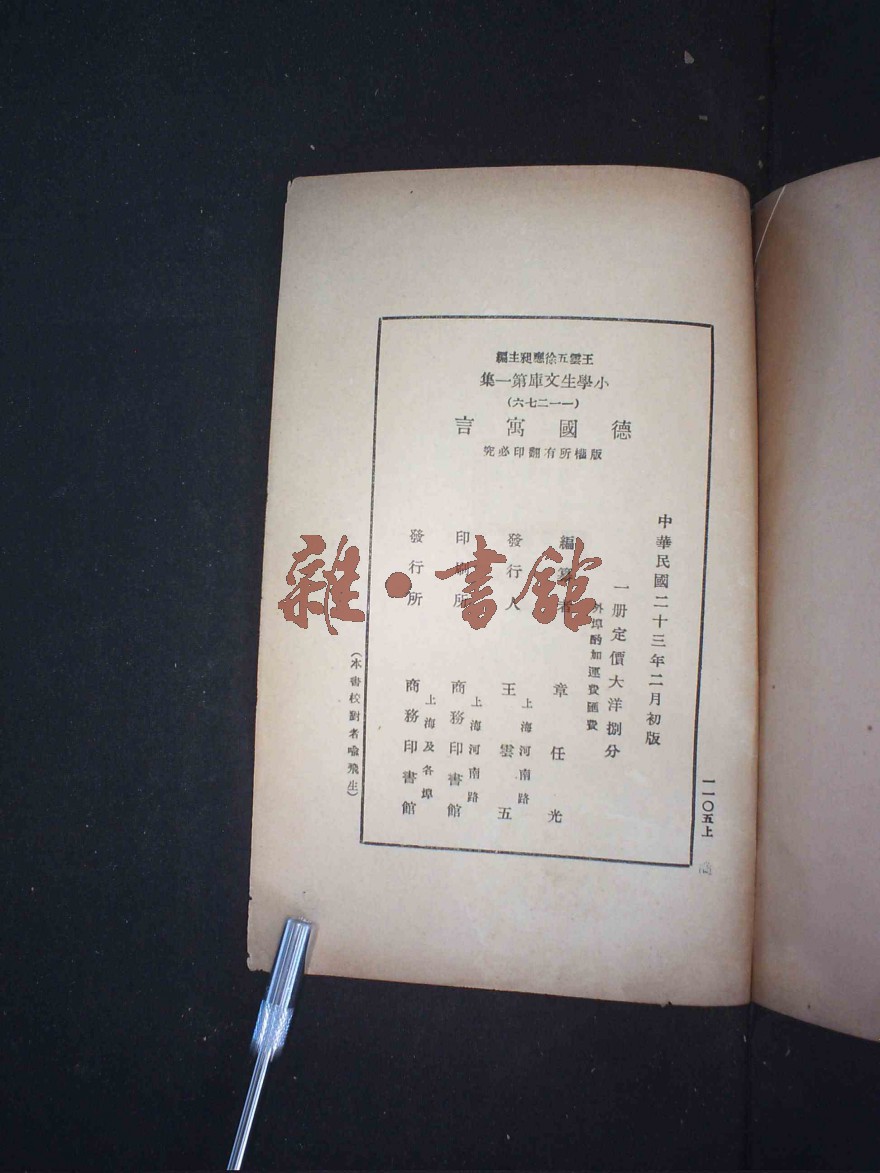 王雲五徐應昶主編
小學生文庫第一集
(一一二七六)
德國寓言
版權所有翻印必究
中華民國二十三年二月初版
一册定價大洋捌分
外埠酌加運費匯費
編纂者 章任光
發行人 王雲五
上海河南路
印刷所 商務印書館
上海河南路
發行所 商務印書館
上海及各埠
(本書校對者喻飛生)
一一〇五上
雜·書館